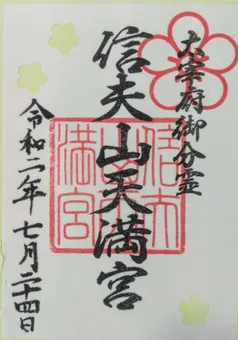 太宰府御分霊
信夫山天満宮
令和二年七月二十四日
信夫山天満宮